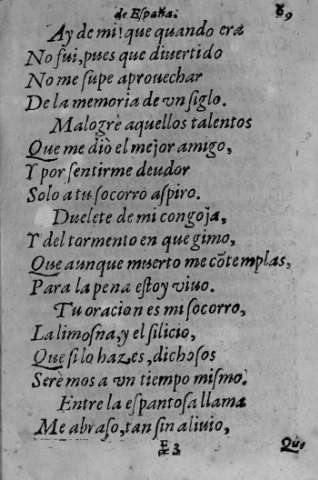 de España. 69
Ay de mi! que quando era
No fui, pues que diuertido
No me supe aprouechar
De la memoria de vn siglo.
Malogrè aquellos talentos
Que me diò el mejor amigo,
Y por sentirme deudor
Solo a tu socorro aspiro.
Duelete de mi congoja,
Y del tormento en que gimo,
Que aunque muerto me cõtemplas,
Para la pena estoy viuo.
Tu oracion es mi socorro,
La limosna, y el silicio,
Que si lo hazes, dichosos
Serèmos a vn tiempo mismo.
Entre la espantosa llama
Me abraso, tan sin aliuio,
3 Que